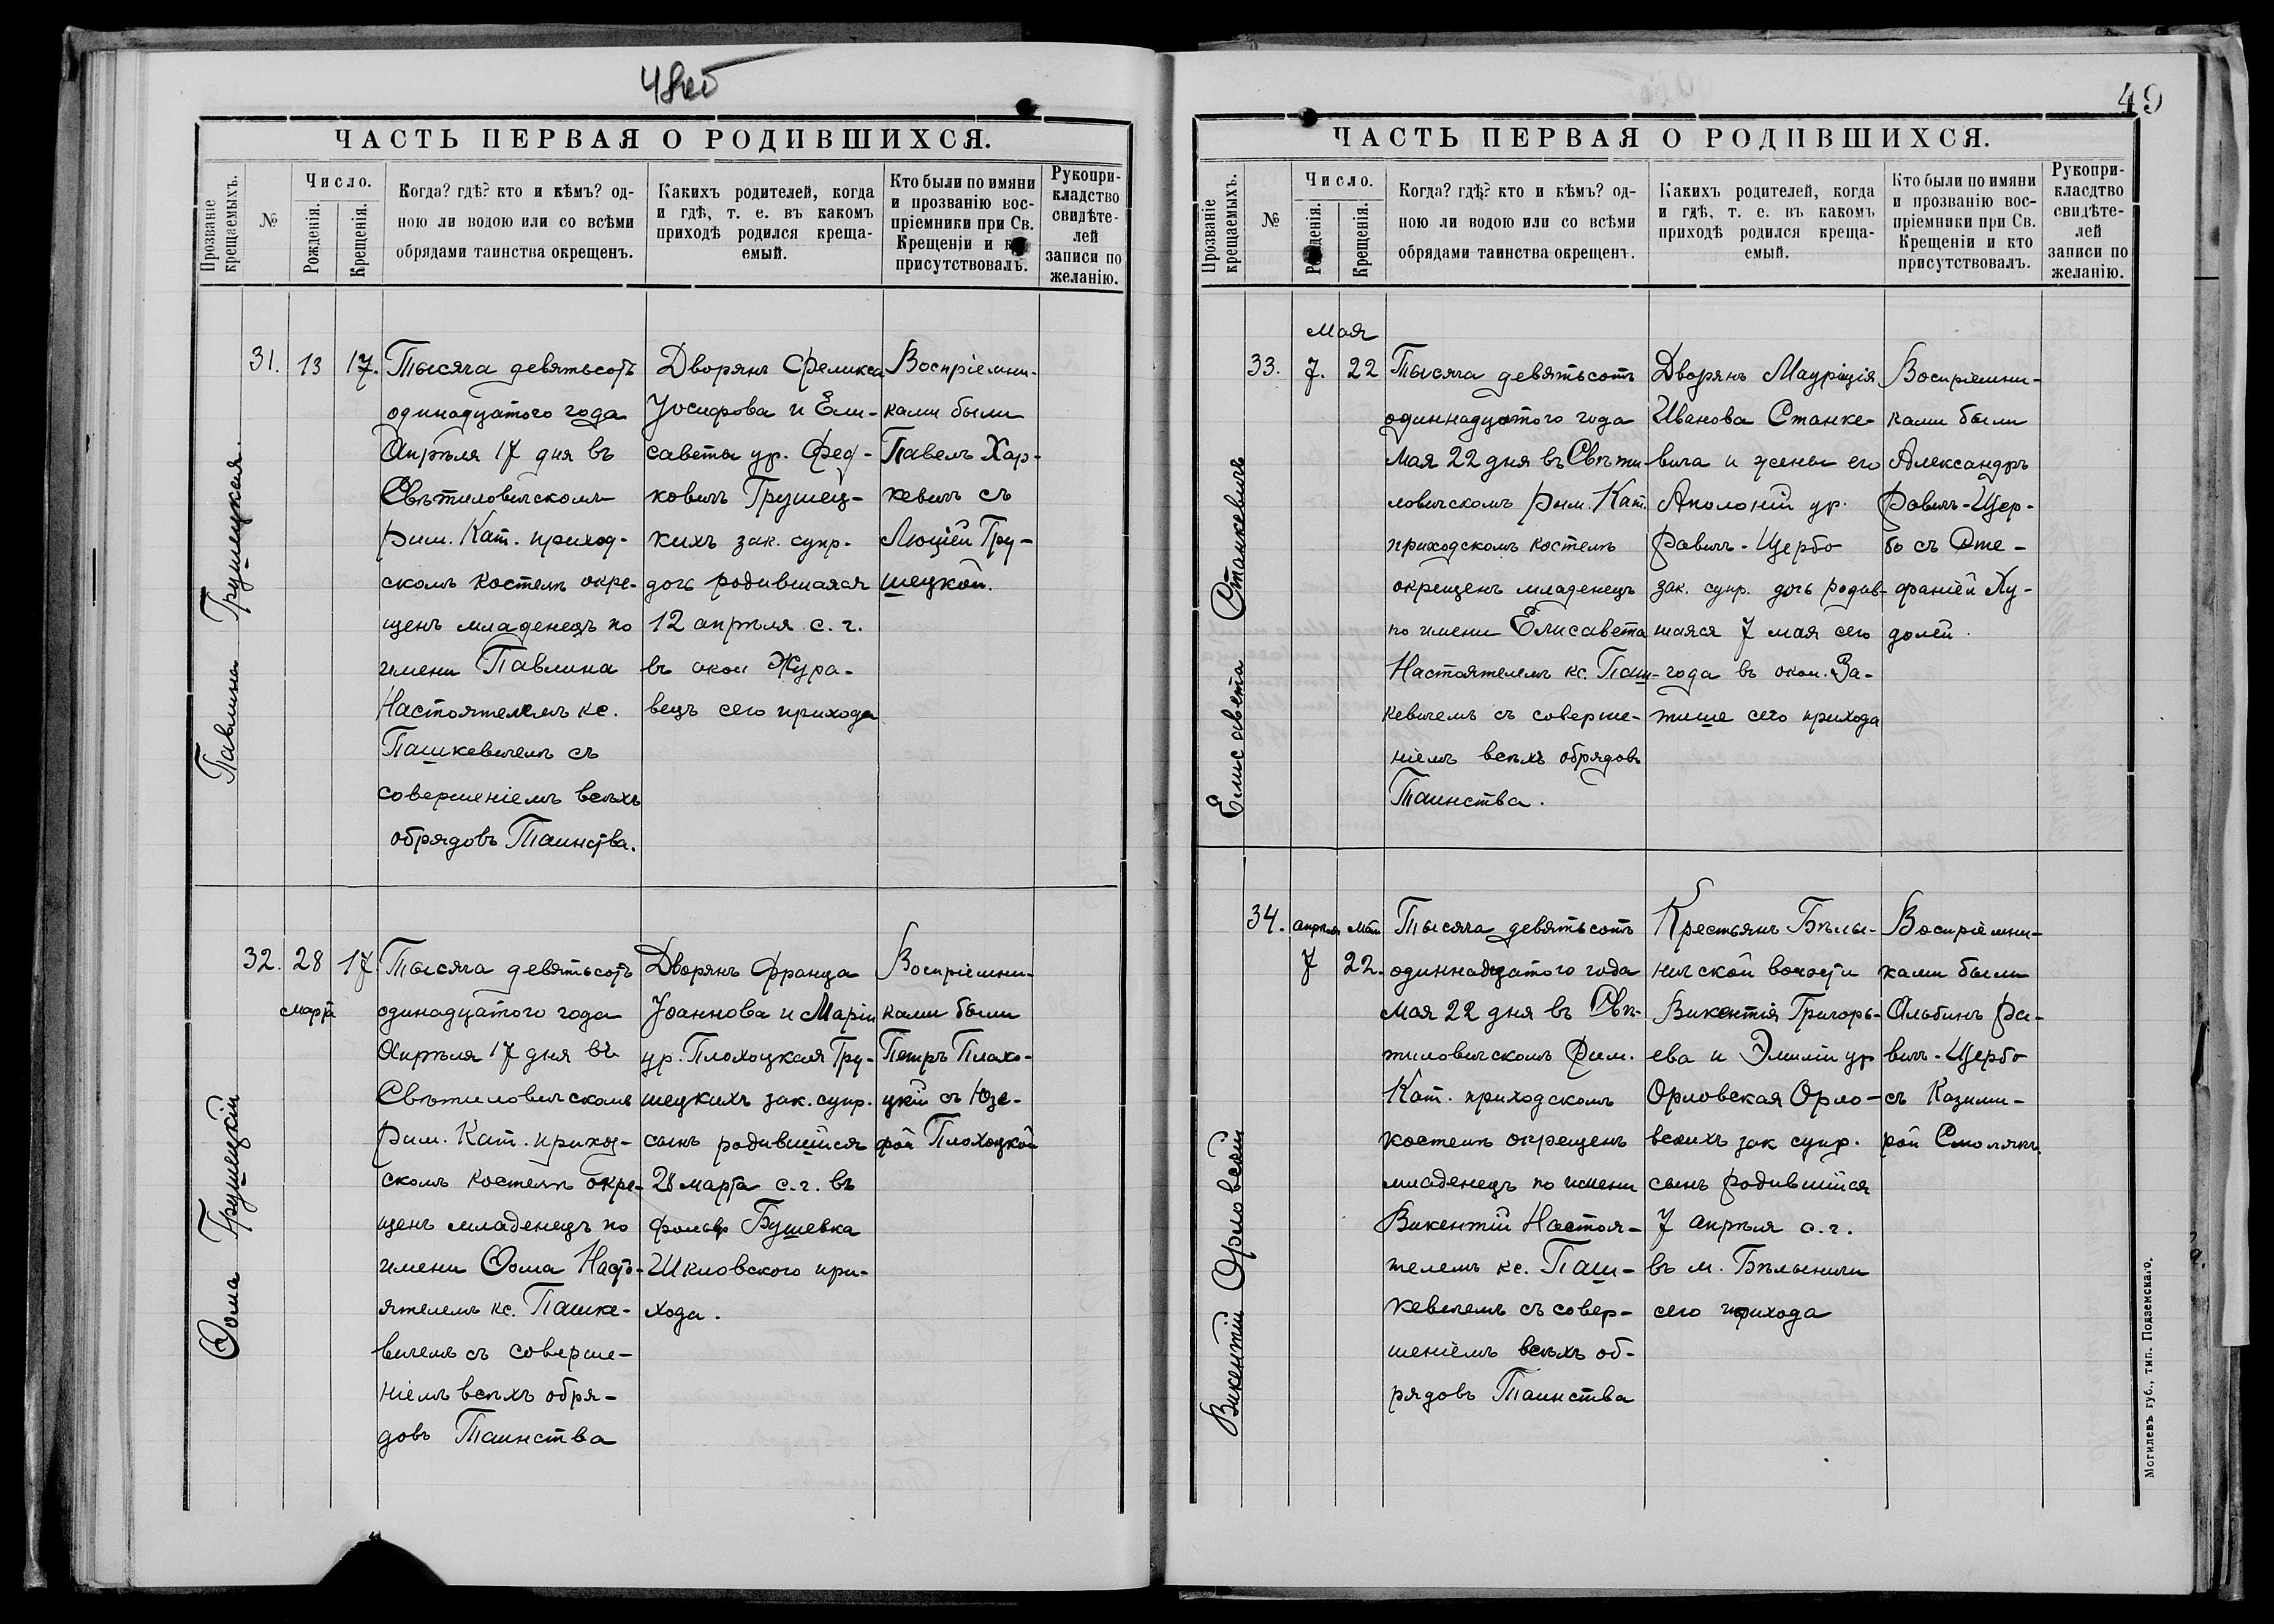 48об
ЧАСТЬ ПЕРВАЯ О РОДИВШИХСЯ.
Прозваніе крещаемыхъ.
№
Число.
Рожденія.
Крещенія.
Когда? гдѣ? кто и кѣмъ? од-
ною ли водою или со всѣми
обрядами таинства окрещенъ.
Какихъ родителей, когда
и гдѣ, т. е. въ какомъ
приходѣ родился креща-
емый.
Кто были по имяни
и прозванію вос-
пріемники при Св.
Крещеніи и
присутствовалъ.
Рукопри-
кладство
свидѣте-
лей
записи по
желанію.
Павлина Трушецкая.
31.
13
17.
Тысяча девятьсотъ
одинадцатого года
Апрѣля 17 дня въ
Свѣтиловичскомъ
Рим. Кат. приход-
скомъ костелѣ окре-
щенъ младенецъ по
имени Павлина
Настоятелемъ кс.
Пашкевичемъ съ
совершеніемъ всѣхъ
обрядовъ Таинства.
Дворянъ Феликса
Іосифова и Ели-
саветы ур. Фед-
ковичъ Трушец-
кихъ зак. супр.
дочь родившаяся
12 апрѣля с. г.
въ окол Жура-
вецъ сего прихода
Воспріемни-
ками были
Павелъ Хар-
кевичъ съ
Люціей Тру-
шецкой.
Ѳома Трушецкій
32.
28
17
марта
Тысяча девятьсотъ
одинадцатого года
Апрѣля 17 дня въ
Свѣтиловичскомъ
Рим. Кат. приход-
скомъ костелѣ окре-
щенъ младенецъ по
имени Ѳома Насто-
ятелемъ кс. Пашке-
вичемъ съ соверше-
ніемъ всѣхъ обря-
довъ Таинства
Дворянъ Франца
Іоаннова и Маріи
ур. Плохоцкая Тру-
шецкихъ зак. супр.
сынъ родившійся
28 марта с. г. въ
фольвр Бушевка
Шкловского при-
хода.
Воспріемни-
ками были
Петръ Плахо-
цкій съ Юзе-
фой Плохоцкой
49
ЧАСТЬ ПЕРВАЯ О РОДИВШИХСЯ.
Прозваніе крещаемыхъ.
№
Число.
Крещенія.
Когда? гдѣ? кто и кѣмъ? од-
ною ли водою или со всѣми
обрядами таинства окрещенъ.
Какихъ родителей, когда
и гдѣ, т. е. въ какомъ
приходѣ родился креща-
емый.
Кто были по имяни
и прозванію вос-
пріемники при Св.
Крещеніи и кто
присутствовалъ.
Рукопри-
класдтво
свидѣте-
лей
записи по
желанію.
Елисавета Станкевичъ
Мая
33.
7.
22
Тысяча девятьсотъ
одиннадцатого года
Мая 22 дня въ Свѣти
ловичскомъ Рим. Кат.
приходскомъ костелѣ
окрещенъ младенецъ
по имени Елисавета
Настоятелемъ кс. Паш-
кевичемъ съ соверше-
ніемъ всѣхъ обрядовъ
Таинства.
Дворянъ Мауриція
Иванова Станке-
вича и жены его
Аполоніи ур.
Равичъ-Щербо
зак. супр. дочь родив-
шаяся 7 мая сего
года въ окол. За-
тише сего прихода
Воспріемни-
ками были
Александръ
Равичъ-Щер-
бо съ Сте-
фаніей Ху-
долей.
Викентій Орловскій
34.
апрѣля
мая
7
22.
Тысяча девятьсотъ
одиннадцатого года
мая 22 дня въ Свѣ-
тиловичскомъ Рим.
Кат. приходскомъ
костелѣ окрещенъ
младенецъ по имени
Викентій Настоя-
телемъ кс. Паш-
кевичемъ съ совер-
шеніемъ всѣхъ об-
рядовъ Таинства
Крестьянъ Бѣлы-
ничской волости
Викентія Григорь-
ева и Эмиліи ур
Орловская Орло-
вскихъ зак супр.
сынъ родившійся
7 апрѣля с. г.
въ м. Бѣлыничи
сего прихода
Воспріемни-
ками были
Альбинъ Ра-
вичъ-Щербо
съ Казими-
рой Смолякъ.
Могилевъ губ., тип. Подземскаго.